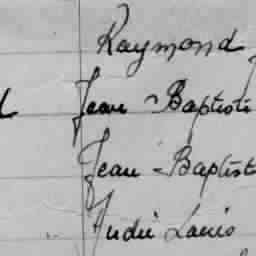 Raymond
Jean - Baptiste
Jean - Baptist
André Louis